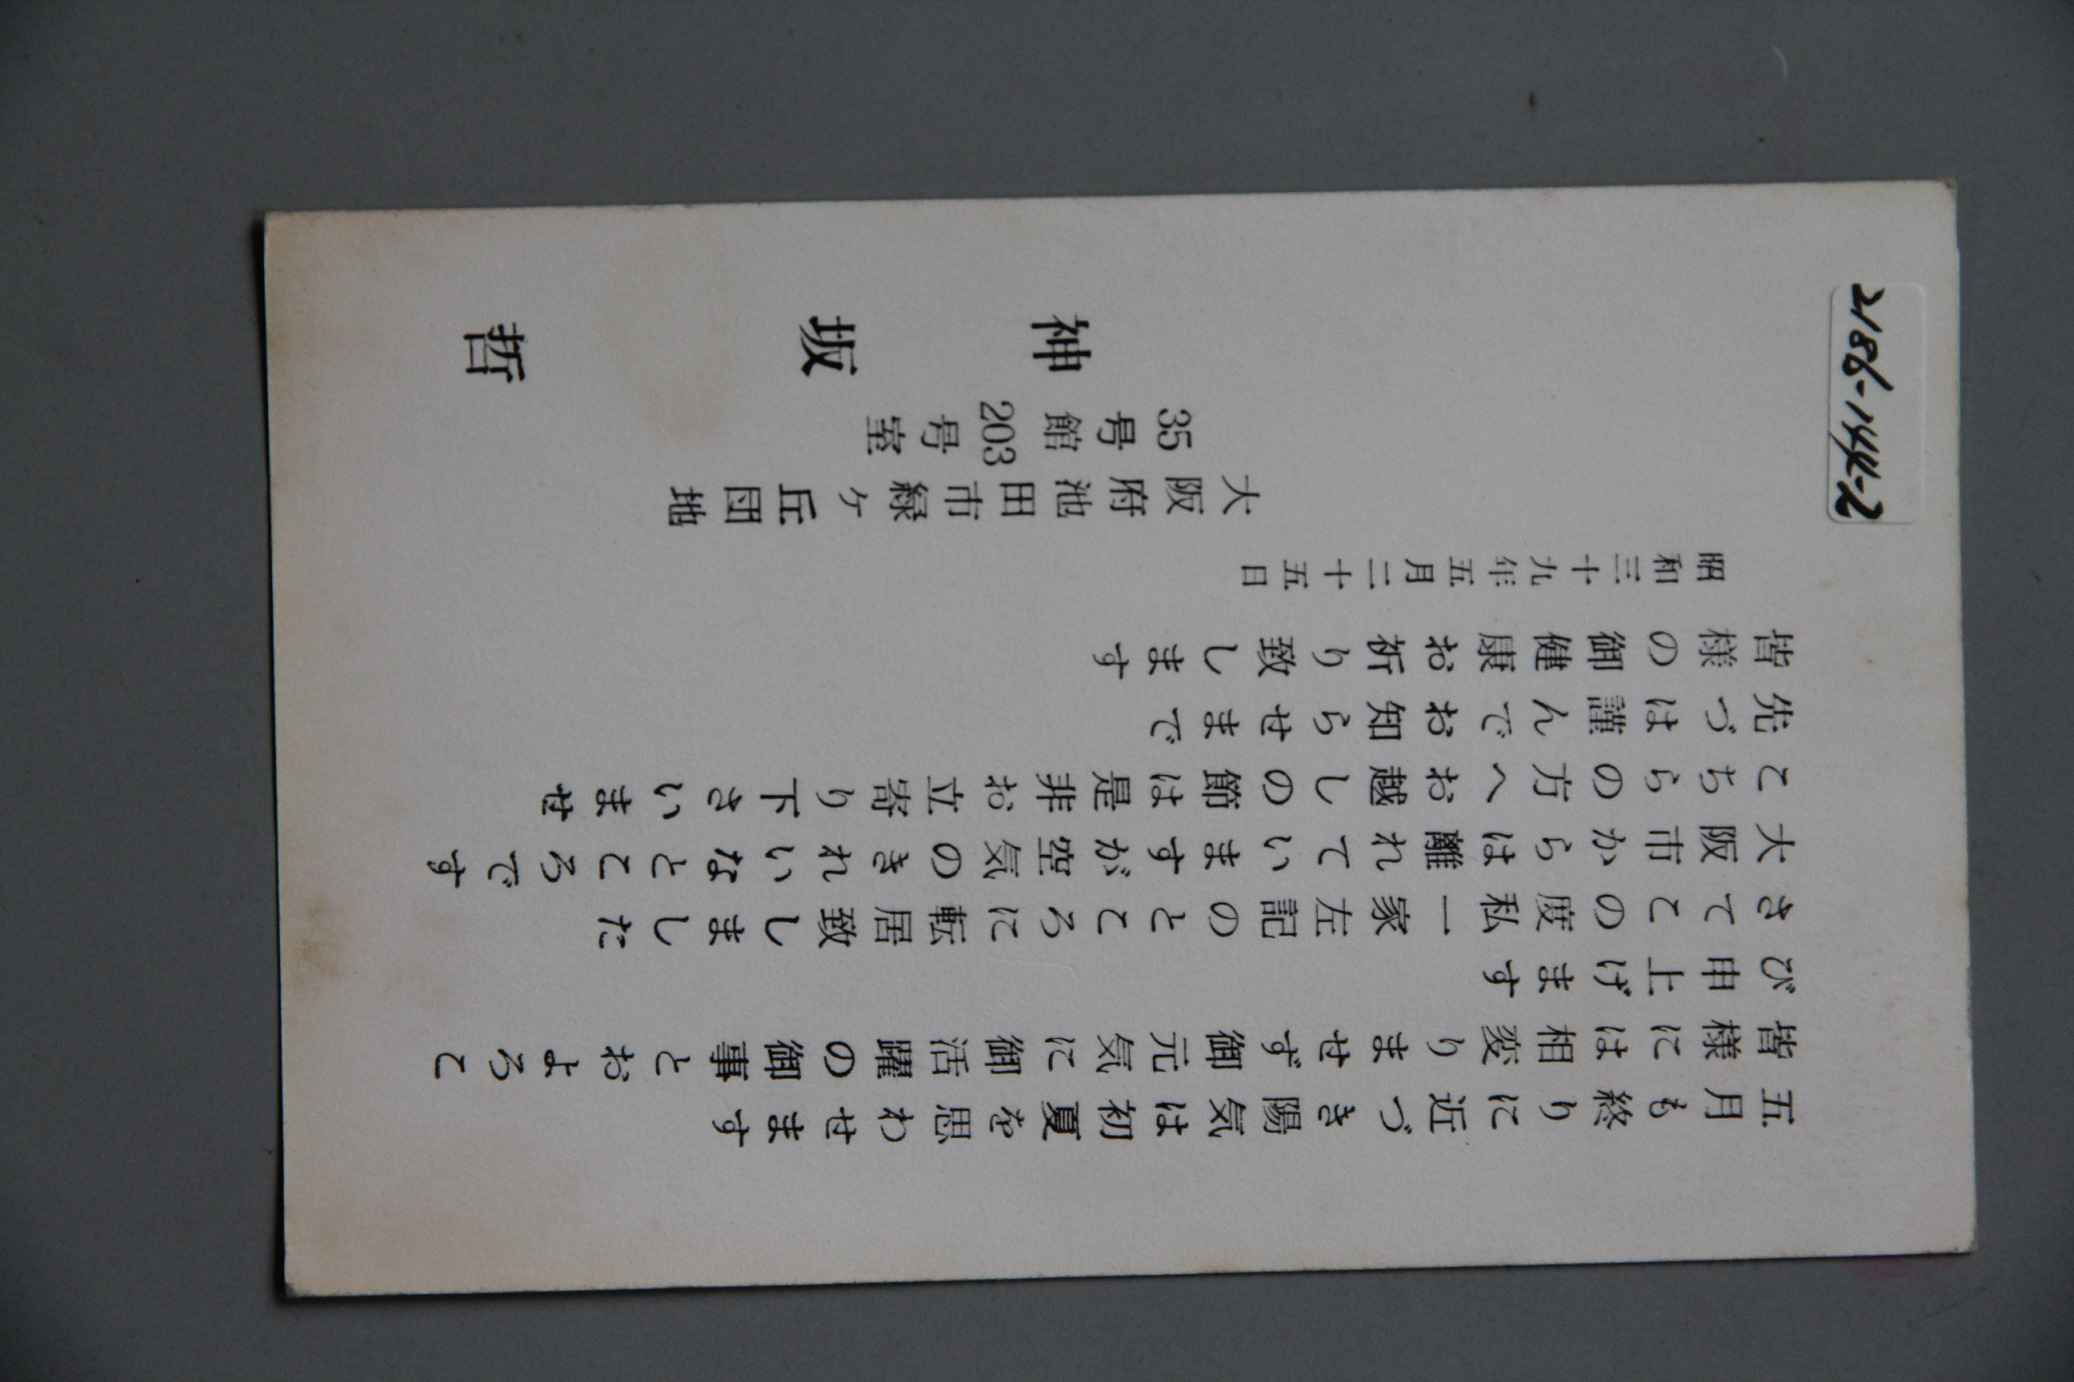 五月も終りに近づき陽気は初夏を思わせます
皆様には相変りませず御元気に御活躍の御事とおよろこ
び申上げます
さてこの度私一家左記のところに転居致しました
大阪市からは離れていますが空気のきれいなところです
こちらの方へお越しの節は是非お立寄り下さいませ
先づは謹んでお知らせまで
皆様の御健康お祈り致します
昭和三十九年五月二十五日
大阪府池田市緑ヶ丘団地
35号館203号室
神坂哲
2186-144-2